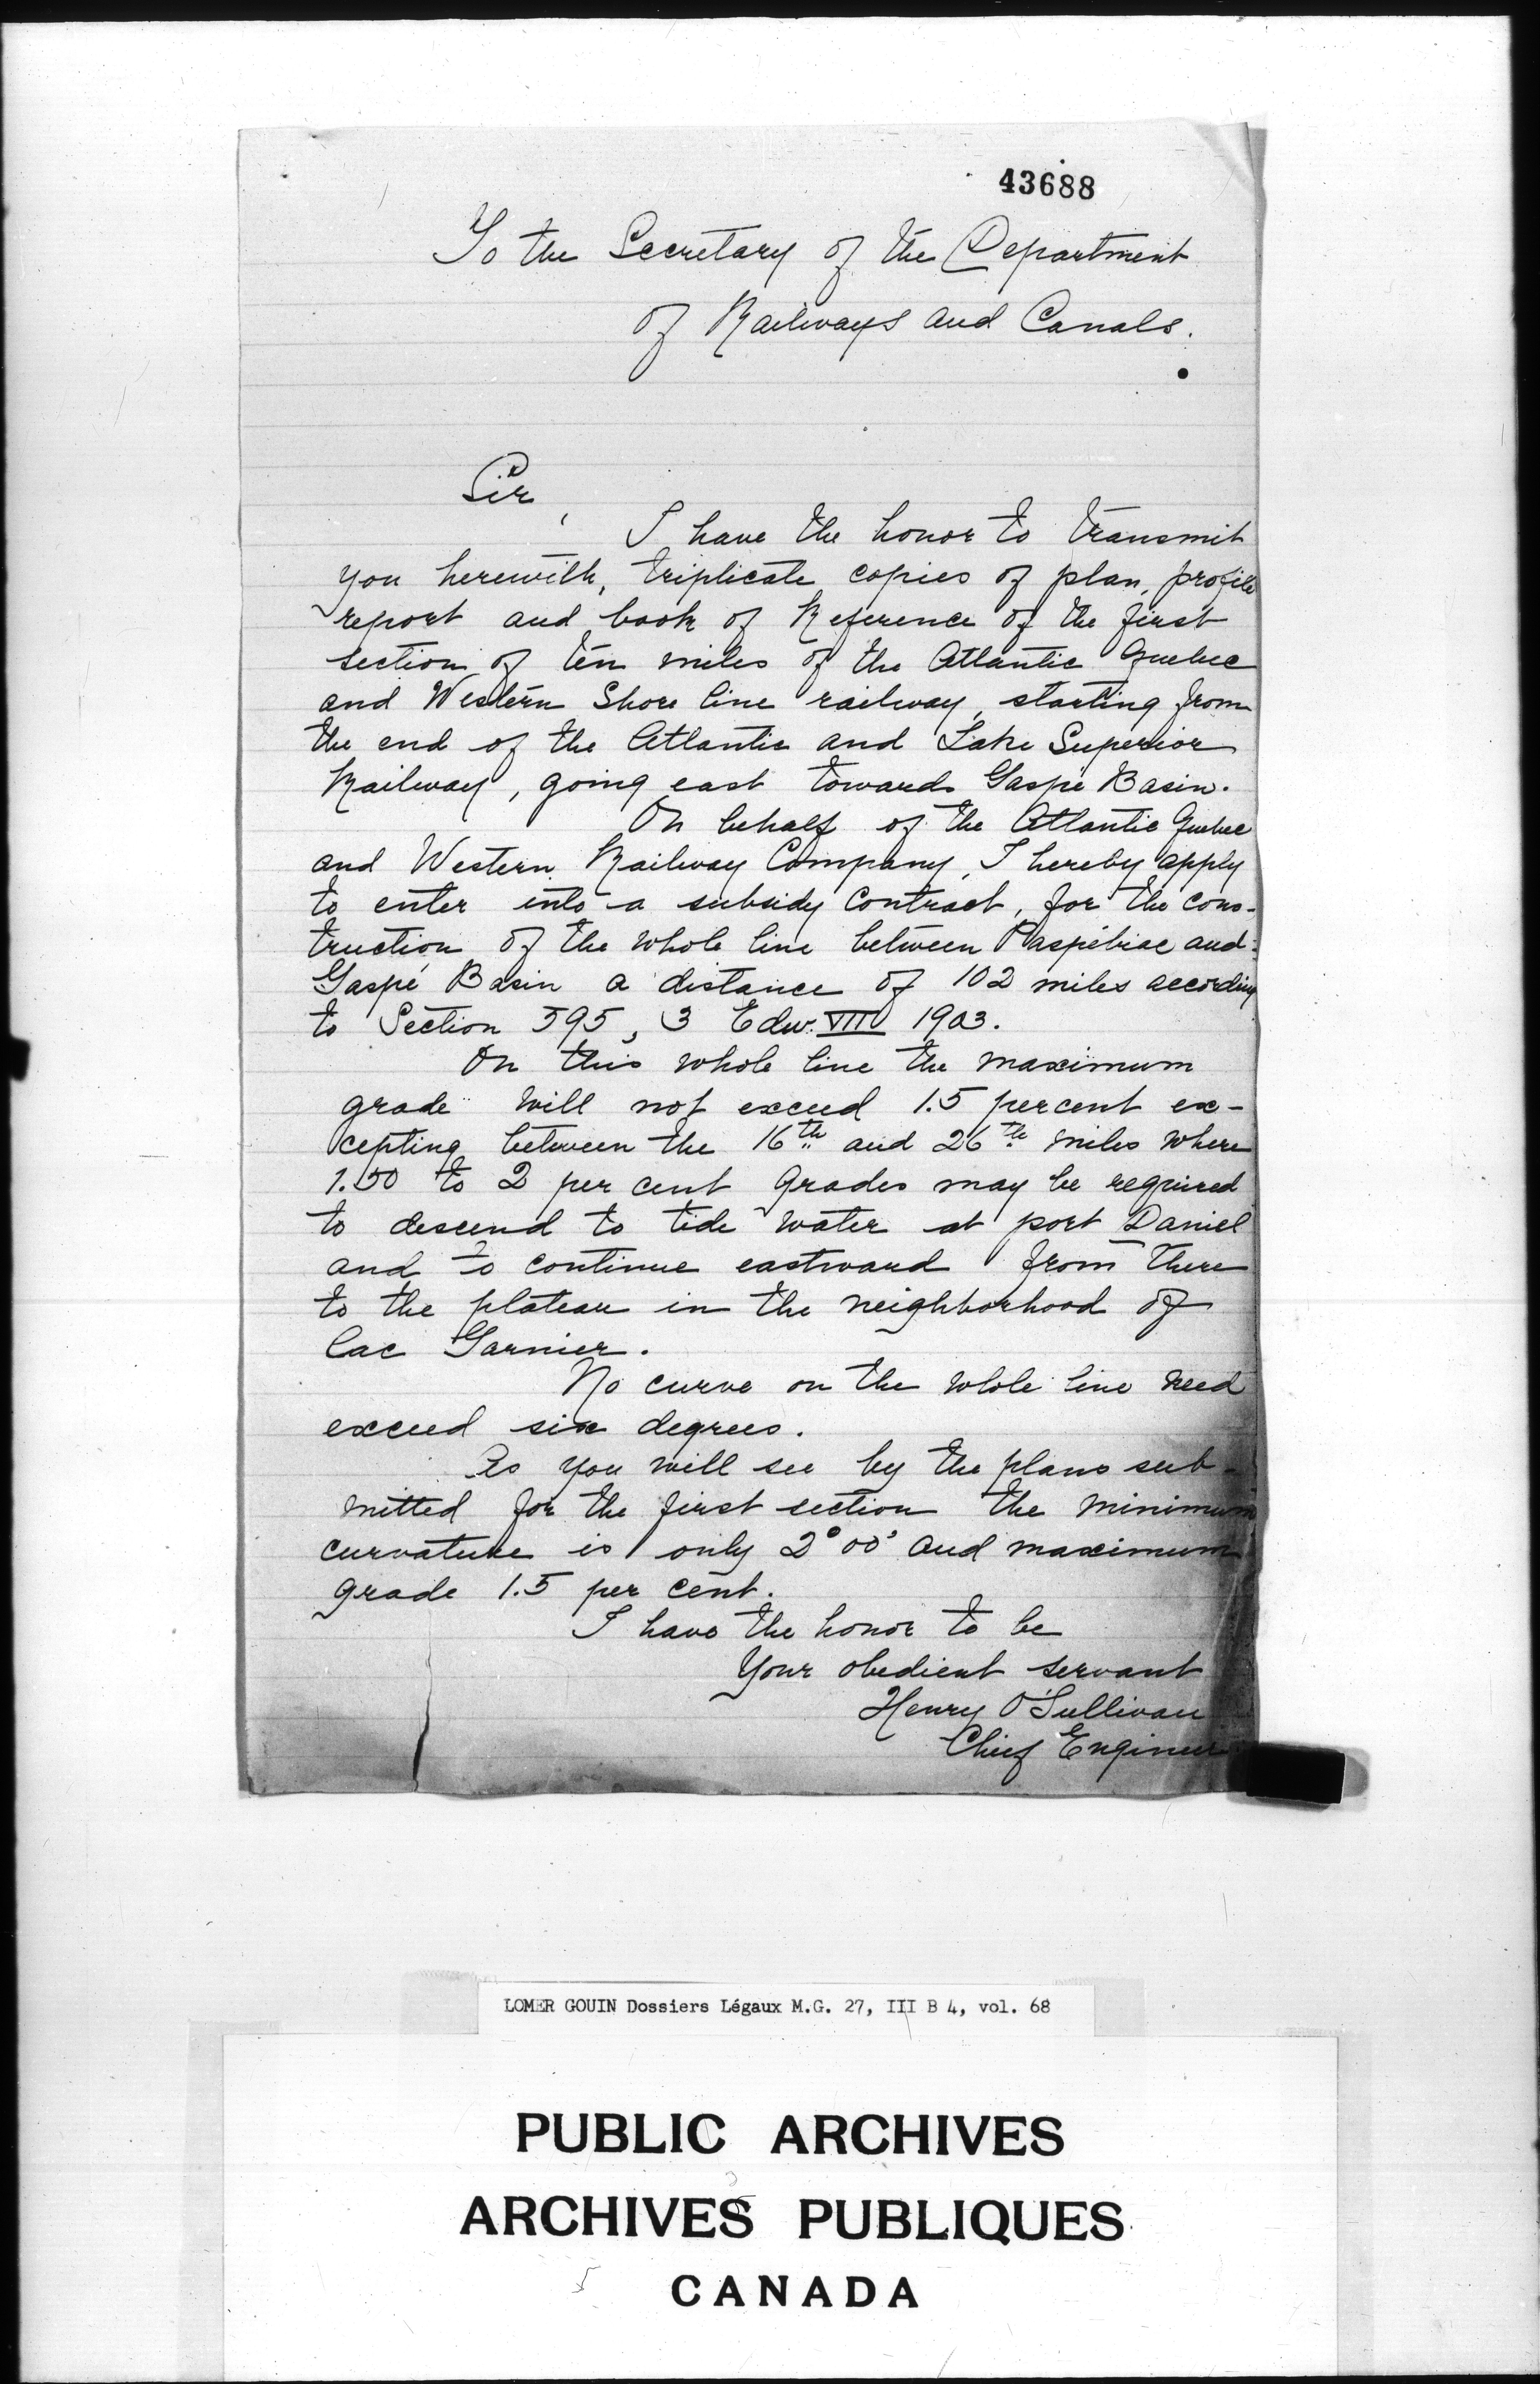 43688
To the Secretary of the Department
of Railways and Canals.
Sir,
I have the honor to transmit
you herewith, triplicate copies of plan, profile
report and book of Reference of the first
section of ten miles of the Atlantic Quebec
and Western Shore line railway, starting from
the end of the Atlantic and Lake Superior
Railway, going east towards Gaspé Basin.
On behalf of the Atlantic Quebec
and Western Railway Company, I hereby apply
to enter into a subsidy contract, for the cons-
truction of the whole line between Paspébiac and
Gaspé Basin a distance of 102 miles according
to Section 595, 3 Edw. VII 1903.
On this whole line the maximum
grade will not exceed 1.5 percent ex-
cepting between the 16th and 26th miles where
1.50 to 2 per cent grades may be required
to descend to tide water at port Daniel
and to continue eastward from there
to the plateau in the neighborhood of
lac Garnier.
No curve on the whole line need
exceed six degrees.
As you will see by the plans sub-
mitted for the first section the minimum
curvature is only 2°00' and maximum
grade 1.5 per cent.
I have the honor to be
Your obedient servant
Henry O'Sullivan
Chief Engineer
LOMER GOUIN Dossiers Légaux M.G. 27, III B 4, vol. 68
PUBLIC ARCHIVES
ARCHIVES PUBLIQUES
CANADA